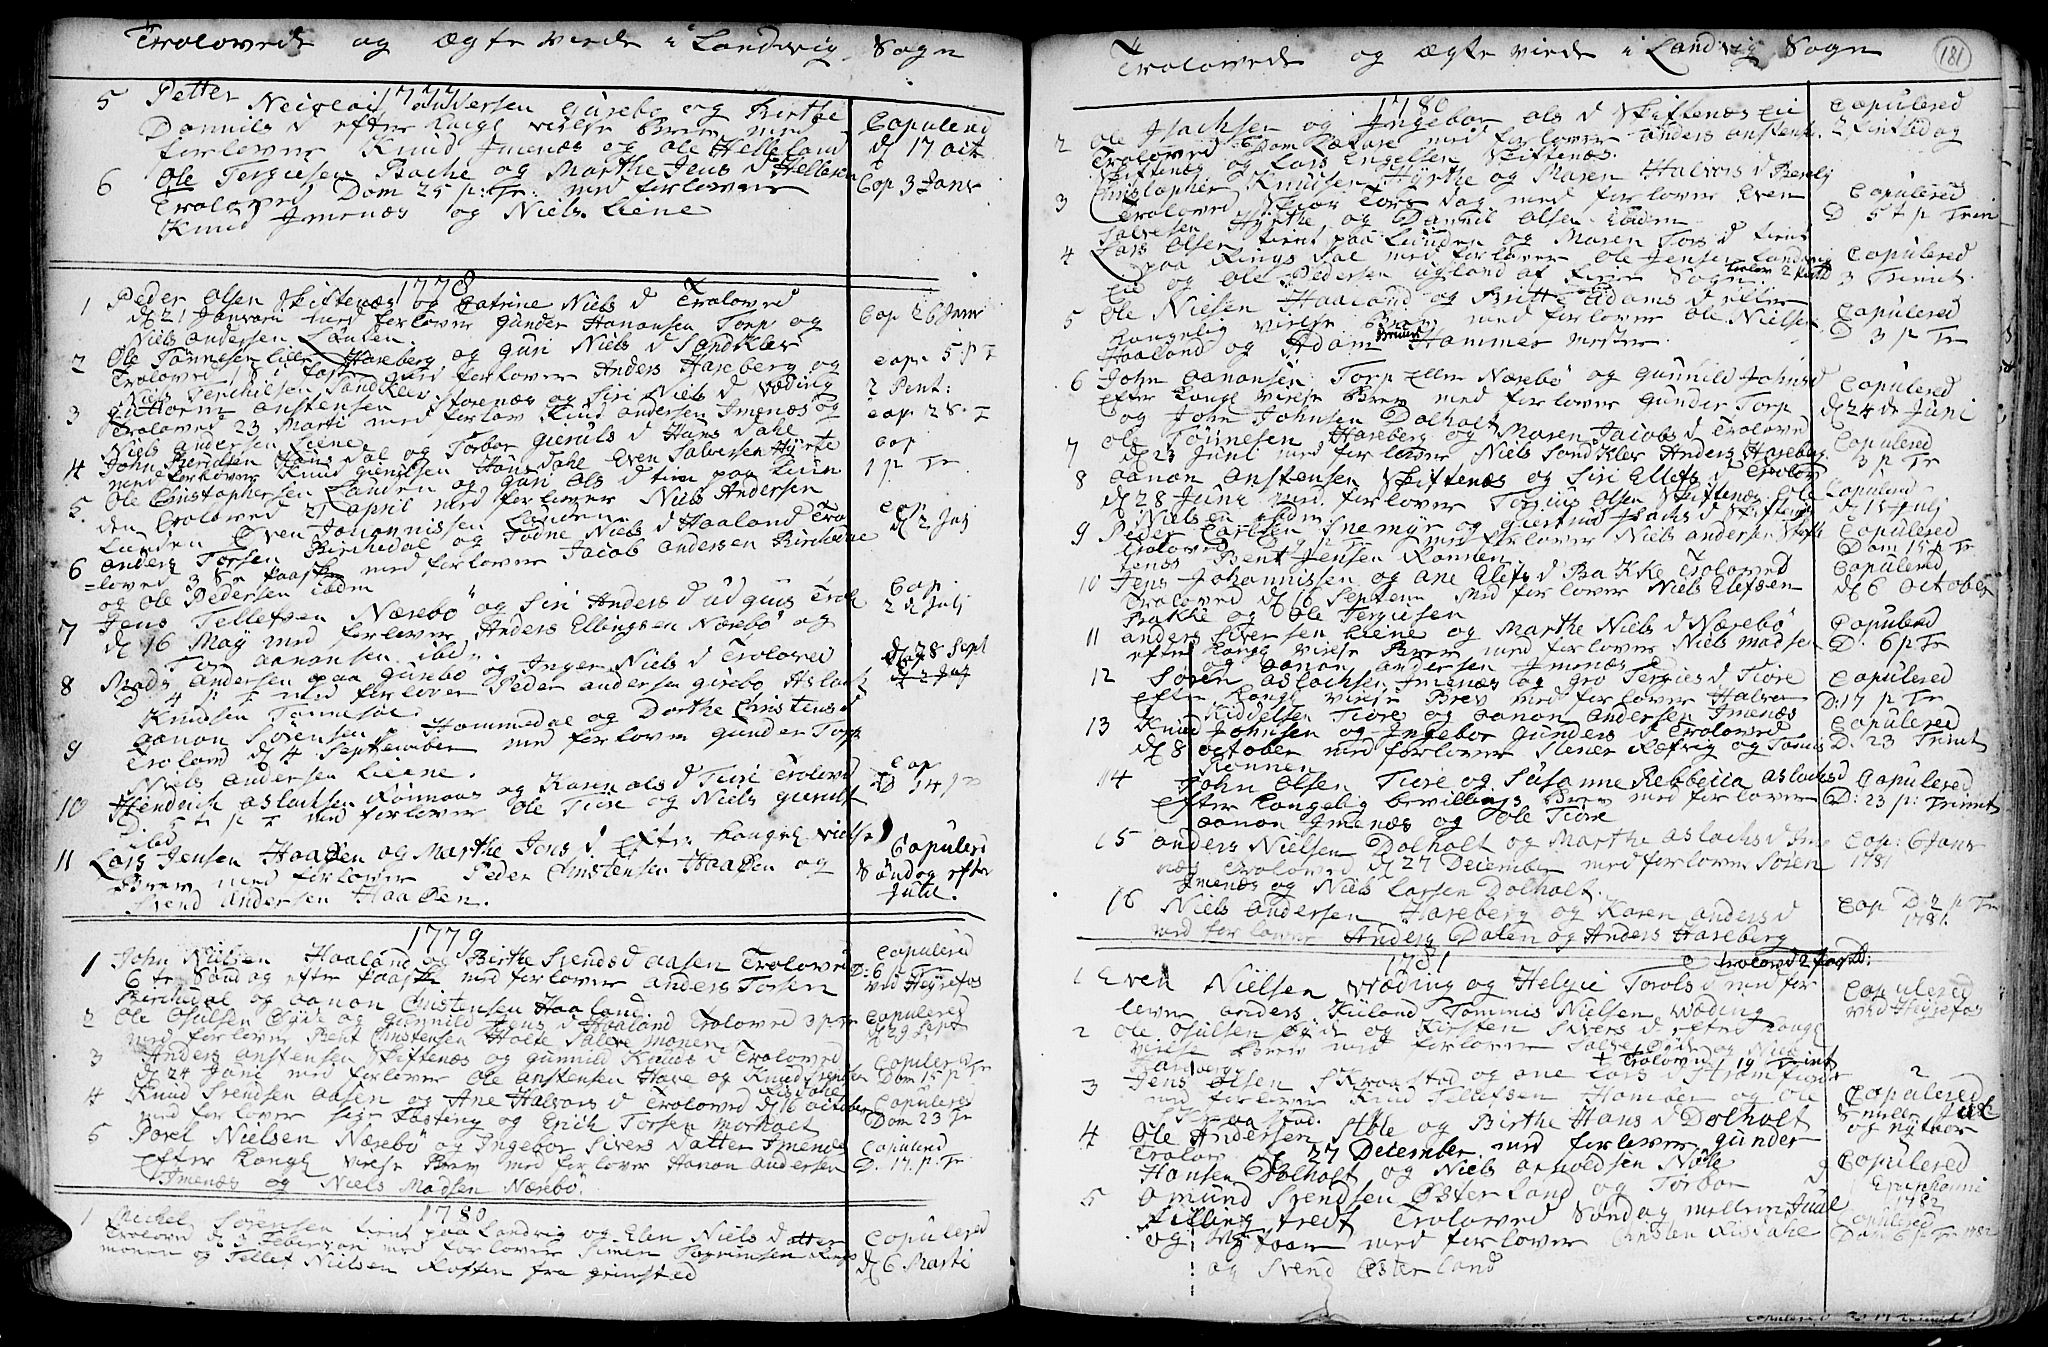 Trolovede og ægte viede i Landvig Sogn
1777
5 Petter Neicolai Andersen gurebo og Birthe
Danniels d efter Kongl vielse Brev med
forlover Knud Jmenæs og Ole Helleland
Copulered
d 17 oct
6 Ole Tergiesen Bache og Marthe Jens d Helleren
Troloved Dom 25 p: Tr: med forlover
Knud Jmenæs og Niels Liene
Cop 3 Janv
1778
1 Peder Olsen Skiftenæs og Catrine Niels d Troloved
d 21 Januari med forlover Gunder Hanansen Torp og
Niels Andersen Lunden
Cop 26 Janv
2 Ole Tønnesen lille Hareberg og guri Niels d Sandklev
Troloved med forlover Anders Hareberg og
Niels Terchilsen Sandklev
cop. 5 p T
3 Guttorm anstensen forenæs og Siri Niels d Væding
Trolovet 23 Marti med forlov Knud andersen Jmenæs og
Niels Andersen Liene
2 Pent:
cop 28. T
4 John Berulsen Hansdal og Torbor gieruls d Hans dahl
med forlover Knud gierulsen Hansdahl Even Salvesen Hørte
cop
1 p Tr
5 Ole Christophersen Landen og guri Ols d tien paa Leiun
den Trolovet 21 april med forlover Niels Andersen
Lunden Even Johannissen Landen
cop
d 2 Julj
6 anders Torsen Birchedal og Todne Niels d Haaland Tro
=loved 3 Sø paaske med forlover Jacob andersen Birchedal
og Ole Pedersen ibdm
Cop
2 d Julj
7 Jens Tellefsen Nærebö og Siri Anders d udgius Trol
d 16 May med forlover Anders Ellingsen Nærebö og
Tor aanansen ibd.
d 28 Sept
8 Mads Andersen paa Gurebo og Inger Niels d Troloved
D 4 p T med forlover Peder andersen gurebo Aslach
Knudsen Tønnesøl
9 aanon Sørensen Hommedal og Dorthe Christens d
Trolovd d 4 September med forlover gunder Torp
Niels Andersen Liene.
Cop
D 14 p
10 Hendrich aslachsen Rönnaas og Karen ols d Tiøre Trolovd
D. 5 te p T med forlover Ole Tiöre og Niels gierulf
ibd
11 Lars Jensen Haaßen og Marthe Jens d efter Kongel vielse
Brev med forlover Peder Christensen Haaßen og
Svend andersen Haaßen.
Copulered
Søndag efter
Juul.
1779
1 John Nielsen Haaland og Birthe Svends d aasen Trolovet
6 te Søndag efter Paaske med forlover anders Torsen
Birchedal og aanon Christensen Haaland
Copulered
D: 6 p Trin
ved Heyrefos
2 Ole Osulsen Øÿde og gunnild Jens d Haaland Trolovet 3 p Tr
med forlover Bent Christensen Holte Salve monen
Copulered
d 29 Sept
3 Anders anstensen Skiftenæs og gunnild Knuds d Trolovet
d 24 Juni med forlover Ole anstensen Hare og Knud Svendsen
Copulered
Dom 15 p Tr
4 Knud Svendsen aasen og Ane Halvors d Trolovet d 16 october
med forlover sige Fasting og Erich Torsen morholt
Copulered
Dom 23 Tr
5 Povel Nielsen Nærebö og Ingebor Sivers datter Jmenæs
efter Kongl vielse Brev med forlover Hanon Andersen
Jmenæs og Niels Madsen Nærebö
Copulered
D. 17. p. Tr.
1780
1 Michel Sörensen tient paa Landvig og Elen Niels datter
Trolovd d Februar med forlover Simen Torginsen
monen og Tellef Nielsen Roften fra grimsted
Copulered
d 6 Marti
Trolovede og ægte viede i Landvig Sogn
181
1780
2 Ole Jsachsen og Ingebor als d Skiftenæs Eie
Trolovet Dom Lætare med forlover anders anstent
Skiftenæs og Lars Engelsen Skiftenæs.
Copulered
2 Pintsedag
3 Christopher Knudsen Hyrthe og Maren Halvors d Berelj
Trolovet Skjær Torsdag med forlover Even
Salvesen Hyrthe og Danniel Olsen ibdm
Copulered
D 5 t p Trin
4 Lars Olsen tient paa Lunden og Maren Tors d tient
paa Kings dal med forlover Ole Jensen Landvig
Eie og Ole Pedersen ugland af Fiære Sogn. trolov 2
Copulered
3 Trinit.
5 Ole Nielsen Haaland og Britte Adams d efter
Kongelig vielse Brev med forlover Ole Nielsen
Haaland og Adam Hammer mester
Copulered
D 3 p Tr
6 John aanansen Torp eller Nærebö og Gunnild Johns d
efter Kongl vielse Brev med forlover Gunder Torp
og John Johnsen Dalholt
Copulered
d 24 de Juni
7 Ole Tönnesen Hareberg og Maren Jacobs d Trolovet
d 23 Juni med forlover Niels Sandklev Anders Hareberg
Copulered
3 p Tr
8 aanon anstensen Skiftenæs og Siri Ellefs d Trolov
d 28 Juni med forlover Torjus Olsen Skiftenæs Ole
Nielsen ibdm
Copulerd
d 15 Julj
9 Peder Carlsen Snemyr og giertrud Jsachs d Skiftenæs
Trolovet p Tr med forlover Niels andersen Skif
tenæs Bent Jensen Rönnen
Copulered
Dom 15 p Tr
10 Jens Johannissen og ane Elefs d Bakke Trolovet
Trolovet d 16 Septem med forlover Niels Elefsen
Bakke og Ole Tergiesen
Copulered
d 6 October
11 anders Siversen Liene og Marthe Niels d Nærebö
efter Kongl vielse Brev med forlover Niels madsen
og aanon andersen Jmenæs
Copulerd
D. 6 p Tr
12 Sören aslachsen Jmenæs og Gro Tergies d Tiöre
efter Kongl vielse Brev med forlover Halvor
Kiddelsen Tiöre og aanon andersen Jmenæs
Copulered
D: 17 p Tr
13 Knud Johnsen og Ingebor gunders d Trolovet
d 8 october med forlover Stener Røfvig og Tomis
Rönnen
Copulered
D. 23 Trinit
14 John Olsen Tiöre og Susanne Rebbecca aslachs d
efter Kongelig bevillings Brev med forlover
aanon Jmenæs og Ole Tiöre
Copulered
D: 23 p: Trinit
15 anders Nielsen Dolholt og Marthe aslachs d Jme
næs Trolovet d 27 December med forlover Sören
Jmenæs og Niels Larsen Dolholt.
Cop: 6 Janv
1781
16 Niels Andersen Hareberg og Karen anders d
med forlover Anders Dalen og Anders Hareberg
Cop D. 2 p Tr
1781.
1781
1 Even Nielsen Væding og Helgie Torols d med for
lover anders Kiiland Tommis Nielsen Væding
Copulered
ved Heyrefos
2 Ole Osulsen Øyde og Kirsten Sivers d efter Kongl
vielse Brev med forlover Salve Øyde og Niels
Hareberg
Trolovet 19 Trinit
3 Jens Olsen Skraastad og ane Lars d
med forlover Knud Tellefsen Homber og Ole
Skraastad.
Copulered
S: mellem Juul
og nytaar
4 Ole Andersen Støle og Birthe Hans d Dolholt
Trolov d 27 December med forlover gunder
Hansen Dolholt og Niels arnoldsen Nöle
Copulered
Epiphanii
1782
5 Omund Svendsen Østerland og Torbor d
Filling tredt Trolovet Söndag mellem Juul
og Nÿtaar med forlover Christen Risdahl
og Svend Østerland
Copulered
Dom 6 p Tr 1782